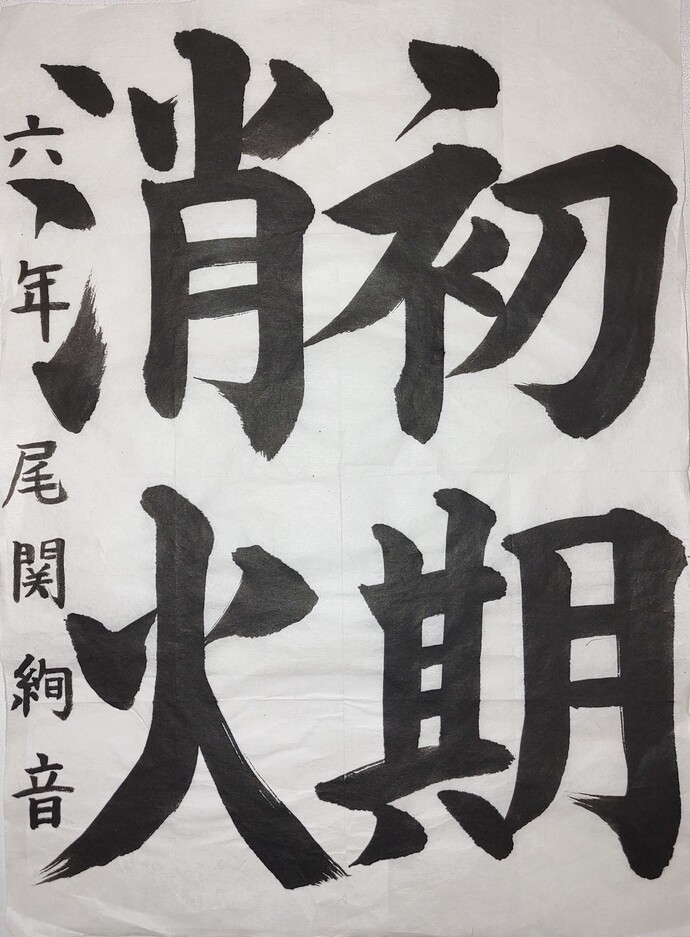 初期
消火
六年 尾関絢音